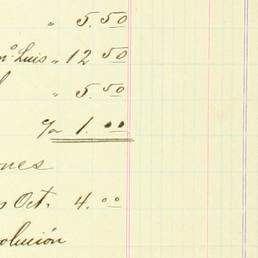 " 5.50
Luis " 12 50
" 5.50
1.00
ones
Oct. 4.00
olución